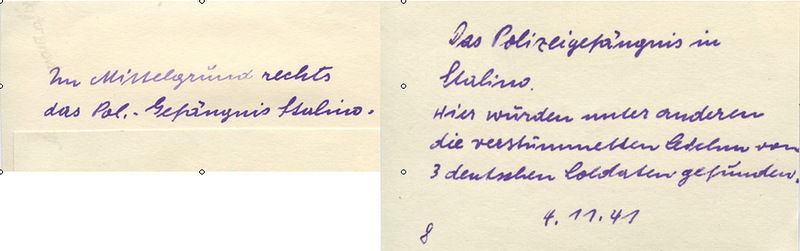 Im Mittelgrund rechts
das Pol.-Gefängnis Stalino.
Das Polizeigefängnis in
Stalino.
Hier wurden unter anderen
die verstümmelten Leichen von
3 deutschen Soldaten gefunden.
4.11.41
8